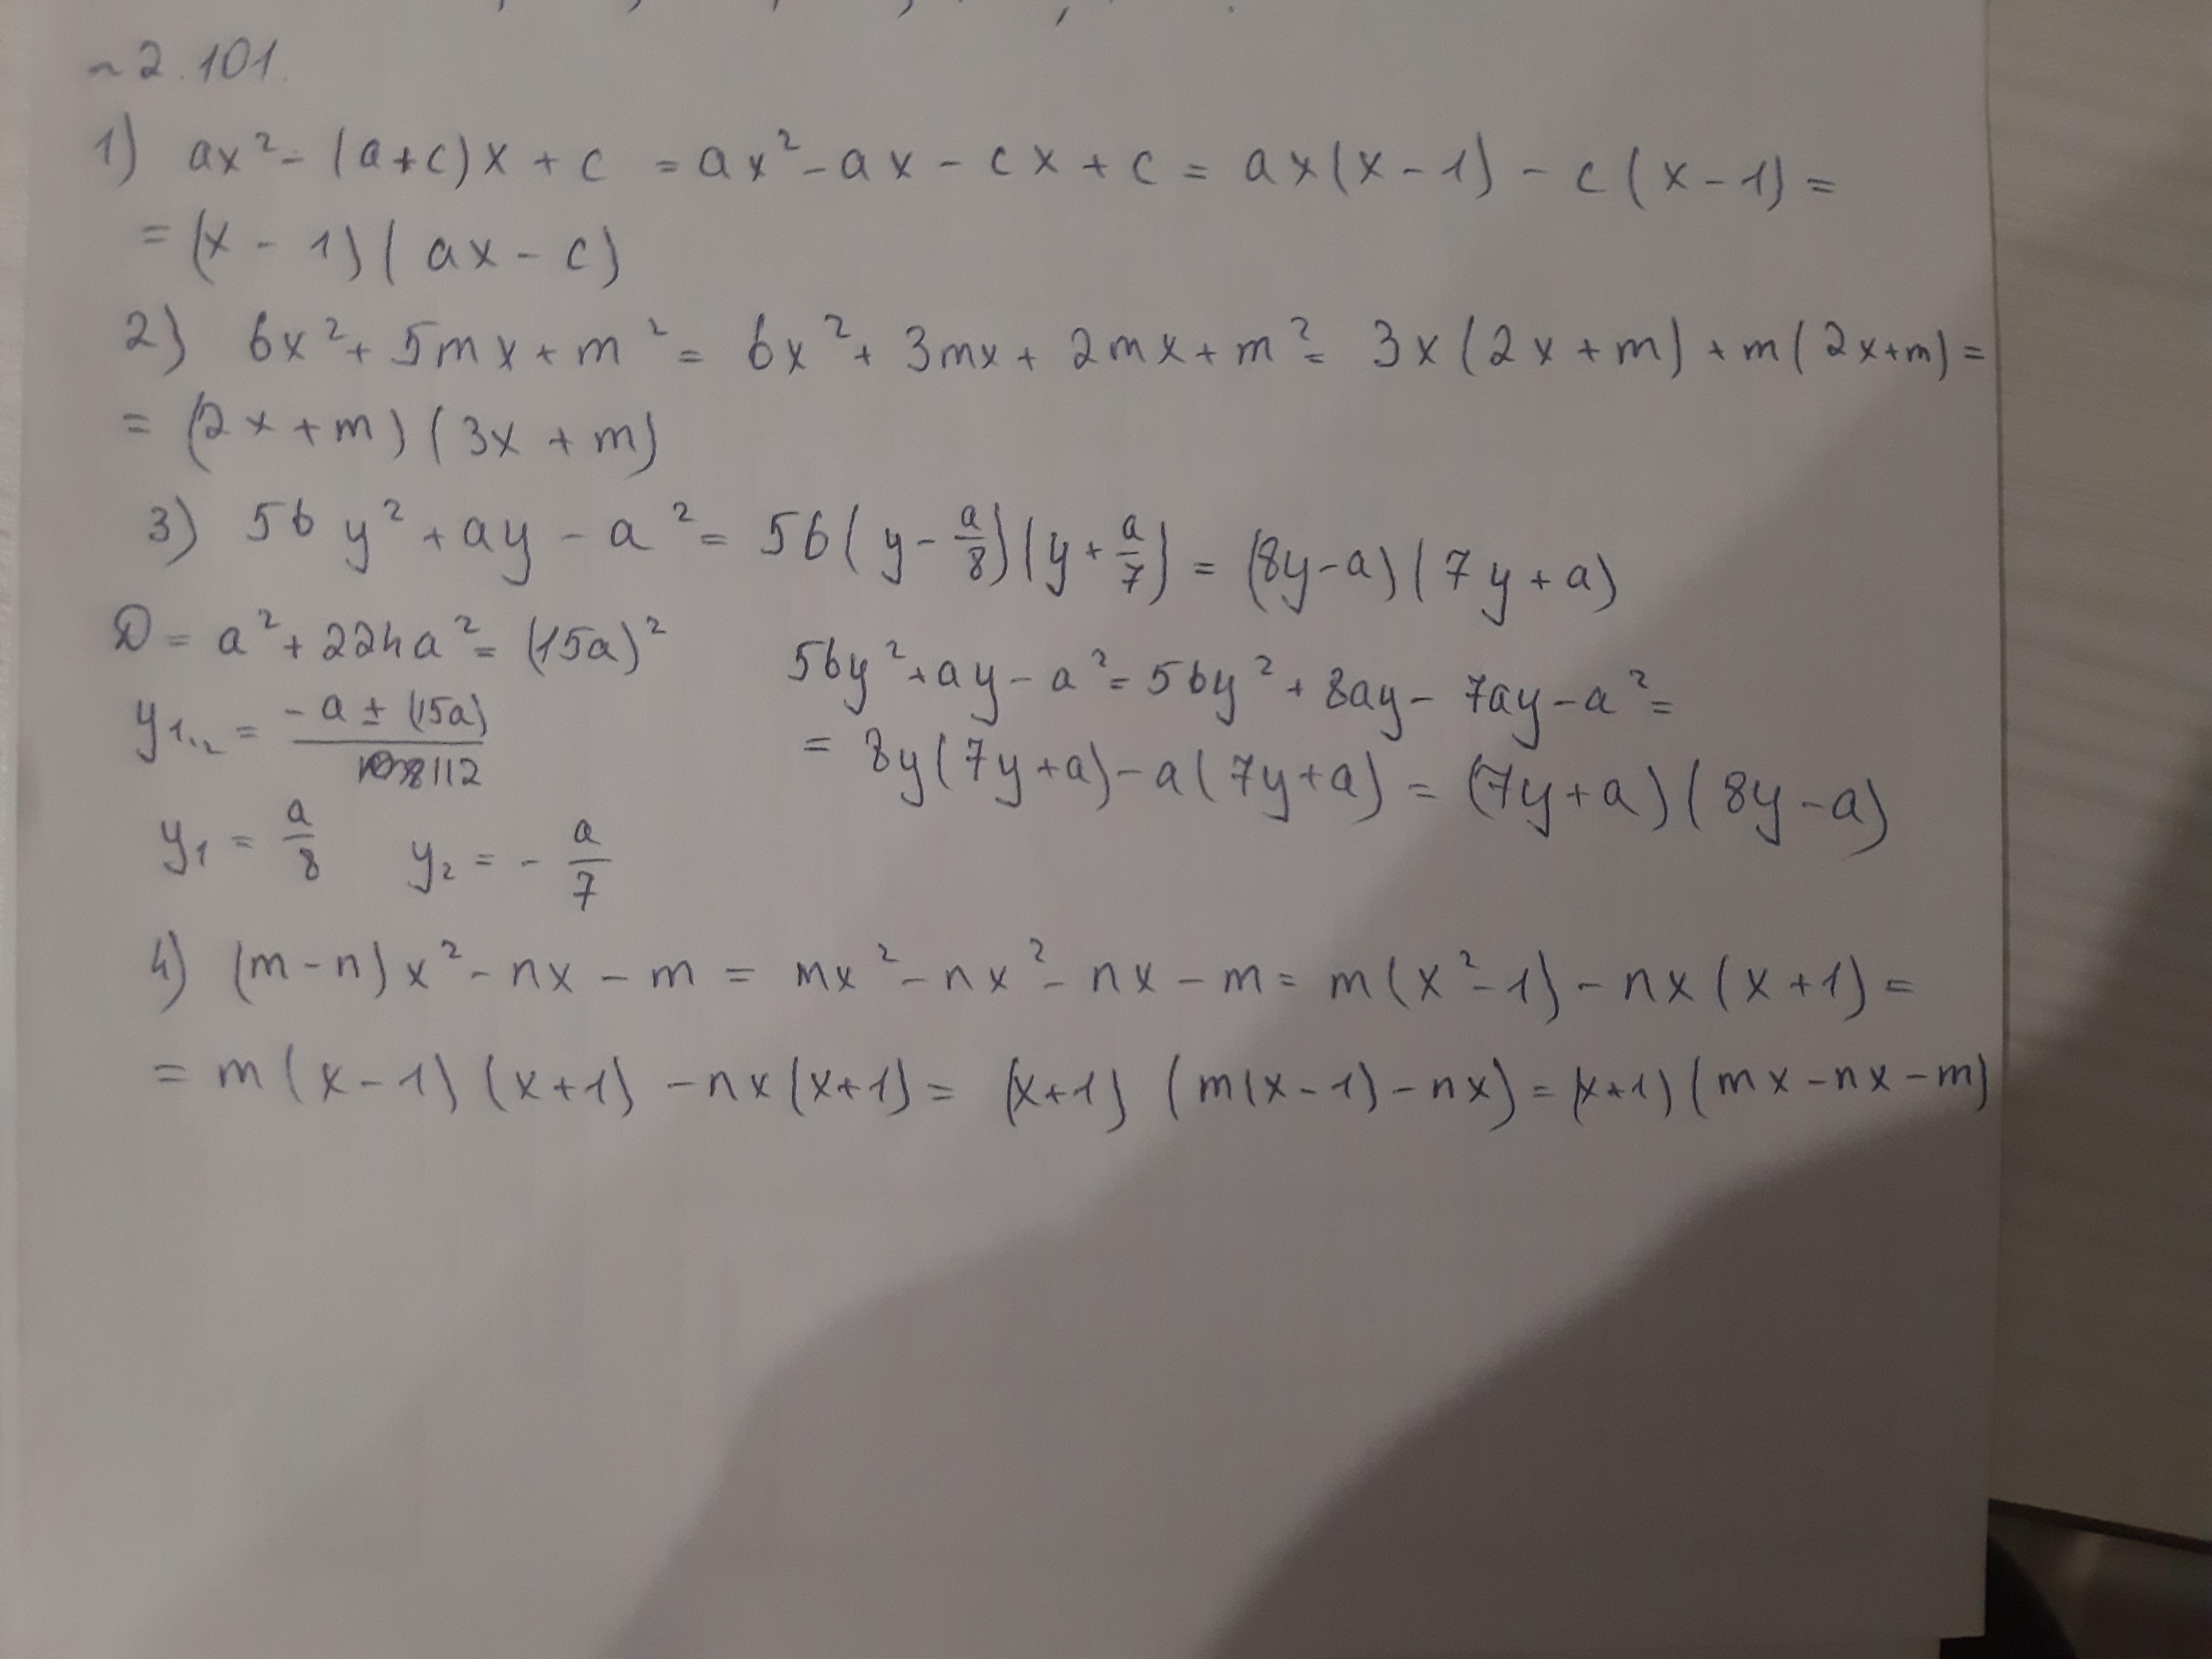 ~ 2.101.
1) ax² - (a+c)x + c = ax² - ax - cx + c = ax(x-1) - c(x-1) =
= (x - 1)(ax - c)
2) 6x² + 5mx + m² = 6x² + 3mx + 2mx + m² = 3x(2x+m) + m(2x+m) =
= (2x+m)(3x+m)
3) 56y² + ay - a² = 56(y - a/8)(y + a/7) = (8y-a)(7y+a)
D = a² + 224a² = (15a)²
56y² + ay - a² = 56y² + 8ay - 7ay - a² =
y1,2 = (-a ± (15a))/112
= 8y(7y+a) - a(7y+a) = (7y+a)(8y-a)
y1 = a/8 y2 = - a/7
4) (m-n)x² - nx - m = mx² - nx² - nx - m = m(x²-1) - nx(x+1) =
= m(x-1)(x+1) - nx(x+1) = (x+1)(m(x-1) - nx) = (x+1)(mx - nx - m)